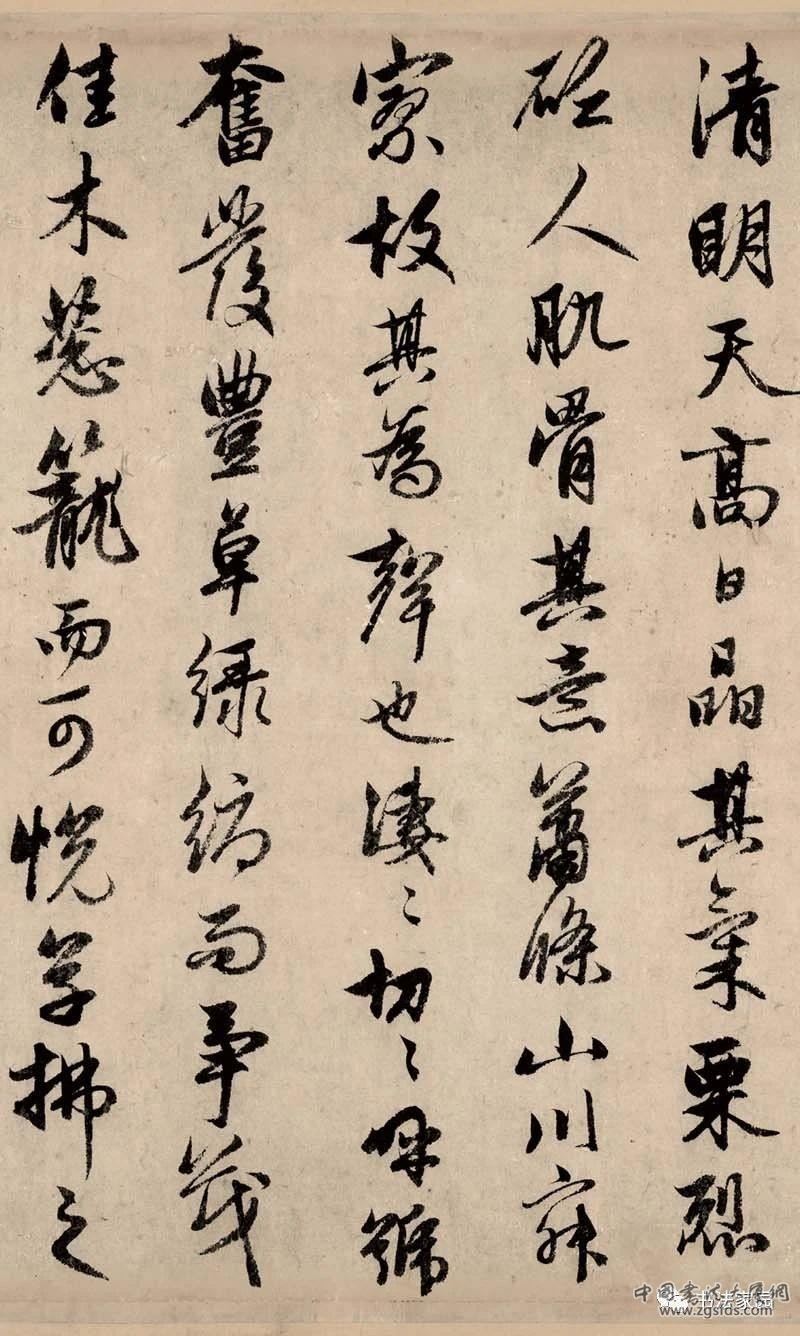 清明天高日晶其氣栗烈
砭人肌骨其意蕭條山川寂
寥故其為聲也淒〻切〻呼號
奮發豐草綠縟而爭茂
佳木葱籠而可悅草拂之
中国书法大展網
书法家园
www.zgsfds.com